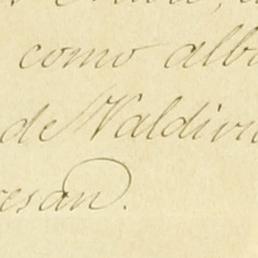 como alb
de Valdivi
esan.